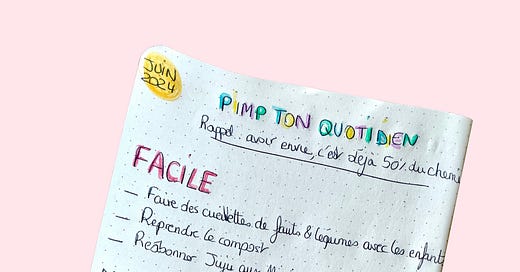 JUIN
2024
PIMP TON QUOTIDIEN
Rappel : avoir envie, c'est déjà 50% du chemi
FACILE
– Faire des cueillettes de fruits & légumes avec les enfants
– Reprendre le compost
– Réabonner Juju aux